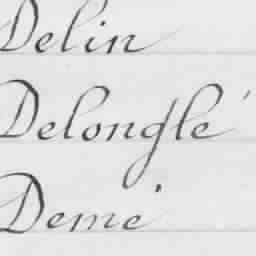 Delin
Delongle'
Deme'